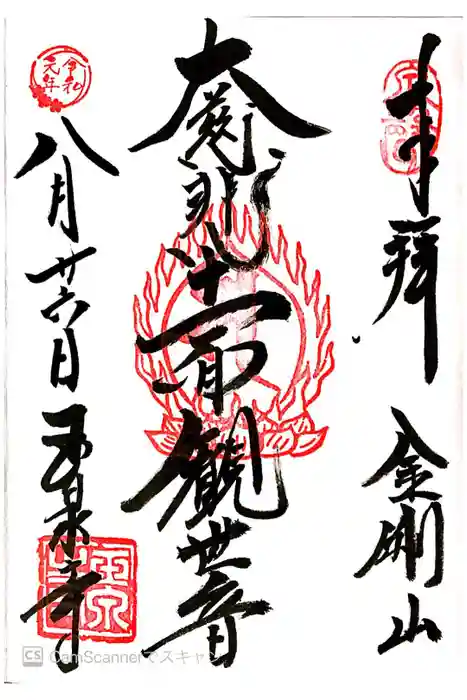 奉拝 金剛山
大慈悲十一面観世音
令和
元年
八月廿六日 玉泉寺
CS CamScannerでスキャン